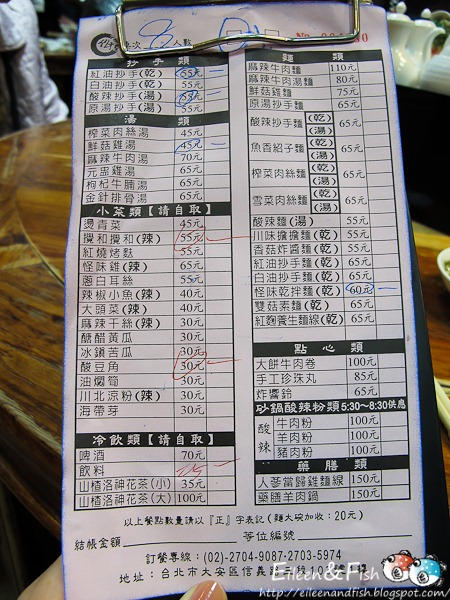 桌次 8 人數
抄手類
紅油抄手(乾) 65元
白油抄手(乾) 55元
酸辣抄手(湯) 65元
原湯抄手(湯) 55元
湯類
榨菜肉絲湯 45元
鮮菇雞湯 45元
麻辣牛肉湯 70元
元盅雞湯 65元
枸杞牛腩湯 65元
金針排骨湯 65元
小菜類【請自取】
燙青菜 45元
攪和攪和(辣) 55元
紅燒烤麩 55元
怪味雞(辣) 65元
蔥白耳絲 55元
辣椒小魚(辣) 40元
大頭菜(辣) 40元
麻辣干絲(辣) 30元
醋醋黃瓜 30元
冰鎮苦瓜 30元
酸豆角 30元
油燜筍 30元
川北涼粉(辣) 30元
海帶芽 30元
冷飲類【請自取】
啤酒 70元
飲料 25元
山楂洛神花茶(小) 35元
山楂洛神花茶(大) 100元
麵類
麻辣牛肉麵 110元
麻辣牛肉湯麵 80元
鮮菇雞麵 75元
原湯抄手麵 65元
酸辣抄手麵 (乾) (湯) 65元
魚香紹子麵 (乾) (湯) 65元
榨菜肉絲麵 (乾) (湯) 65元
雪菜肉絲麵 (乾) (湯) 65元
酸辣麵(湯) 55元
川味擔擔麵(乾) 55元
香菇炸醬麵(乾) 55元
紅油抄手麵(乾) 65元
白油抄手麵(乾) 65元
怪味乾拌麵(乾) 60元
雙菇素麵(乾) 65元
紅麴養生麵線(乾) 65元
點心類
大餅牛肉卷 100元
手工珍珠丸 85元
炸響鈴 65元
砂鍋酸辣粉類 5:30~8:30供應
酸辣
牛肉粉 100元
羊肉粉 100元
豬肉粉 100元
藥膳類
人蔘當歸雞麵線 150元
藥膳羊肉鍋 150元
以上餐點數量請以『正』字表記(麵大碗加收:20元)
結帳金額 等位編號
訂餐專線:(02)-2704-9087-2703-5974
地址:台北市大安區信義路三段
Eileen&Fish
http://eileenandfish.blogspot.com/